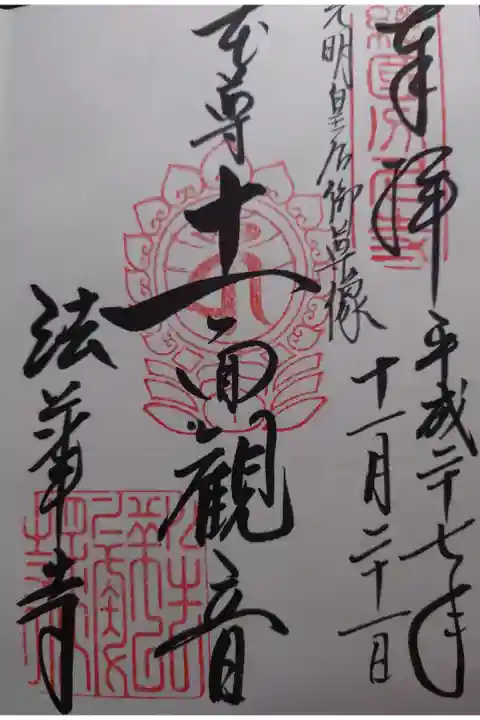 奉拝
平成二十七年
十一月二十一日
光明皇后御尊像
本尊
十一面観音
法華寺